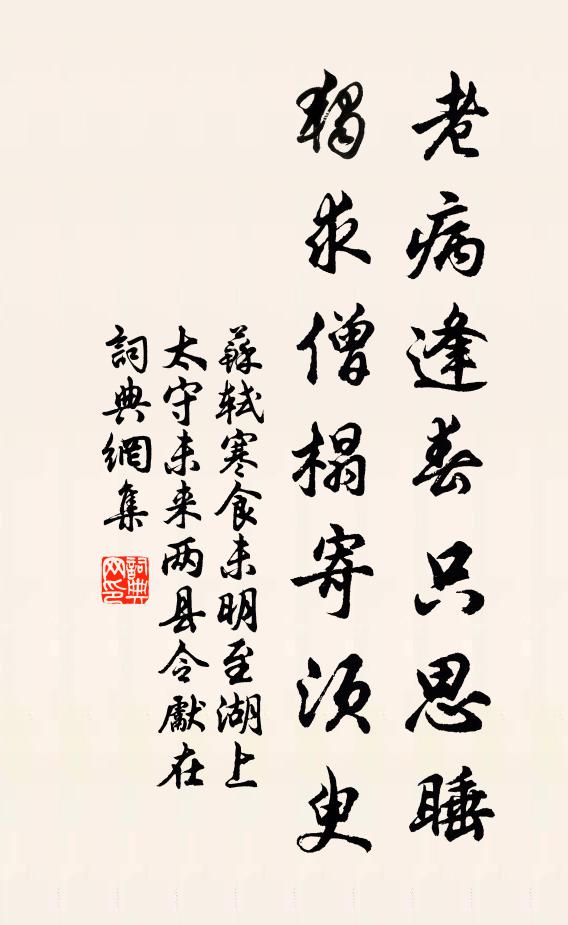 老病逢春只思睡
獨求僧榻寄須臾
蘇軾寒食未明至湖上
太守未来两县令獻在
詞典網集
詞典
网印